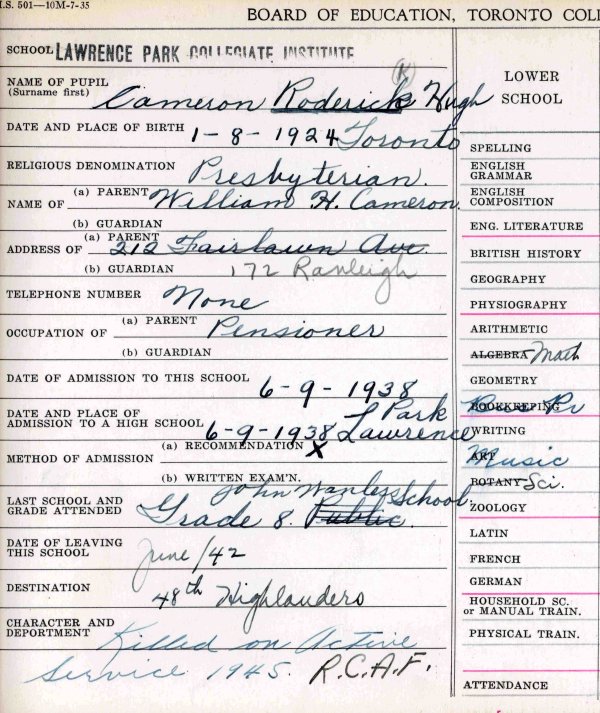 I.S. 501—10M-7-35
BOARD OF EDUCATION, TORONTO COLL
SCHOOL LAWRENCE PARK COLLEGIATE INSTITUTE
(K)
NAME OF PUPIL
(Surname first) Cameron Roderick Hugh
DATE AND PLACE OF BIRTH 1-8-1924 Toronto
RELIGIOUS DENOMINATION Presbyterian.
NAME OF (a) PARENT William H. Cameron.
(b) GUARDIAN
ADDRESS OF (a) PARENT 212 Fairlawn Ave
(b) GUARDIAN 172 Ranleigh
TELEPHONE NUMBER None
OCCUPATION OF (a) PARENT Pensioner
(b) GUARDIAN
DATE OF ADMISSION TO THIS SCHOOL 6-9-1938
DATE AND PLACE OF
ADMISSION TO A HIGH SCHOOL 6-9-1938 Lawrence Park
METHOD OF ADMISSION (a) RECOMMENDATION X
(b) WRITTEN EXAM'N.
LAST SCHOOL AND
GRADE ATTENDED John Wanless School.
Grade 8. Public.
DATE OF LEAVING
THIS SCHOOL June/42
DESTINATION 48th Highlanders
CHARACTER AND
DEPORTMENT Killed on Active
Service 1945. R.C.A.F.
LOWER
SCHOOL
SPELLING
ENGLISH
GRAMMAR
ENGLISH
COMPOSITION
ENG. LITERATURE
BRITISH HISTORY
GEOGRAPHY
PHYSIOGRAPHY
ARITHMETIC
ALGEBRA Math
GEOMETRY
BOOKKEEPING Bus Pr
WRITING
ART Music
BOTANY Sci.
ZOOLOGY
LATIN
FRENCH
GERMAN
HOUSEHOLD SC.
or MANUAL TRAIN.
PHYSICAL TRAIN.
ATTENDANCE